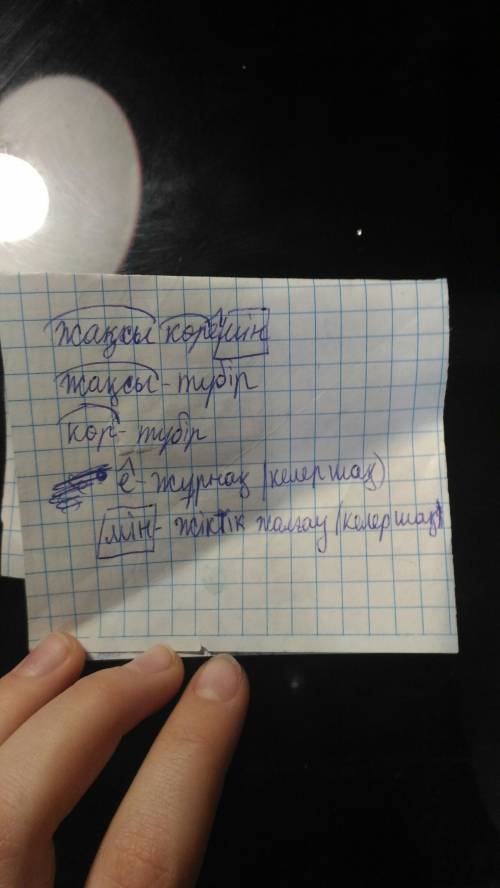 жақсы көремін
жақсы - түбір
көр - түбір
е - журнақ (келер шақ)
мін - жіктік жалғау (келер шақ)